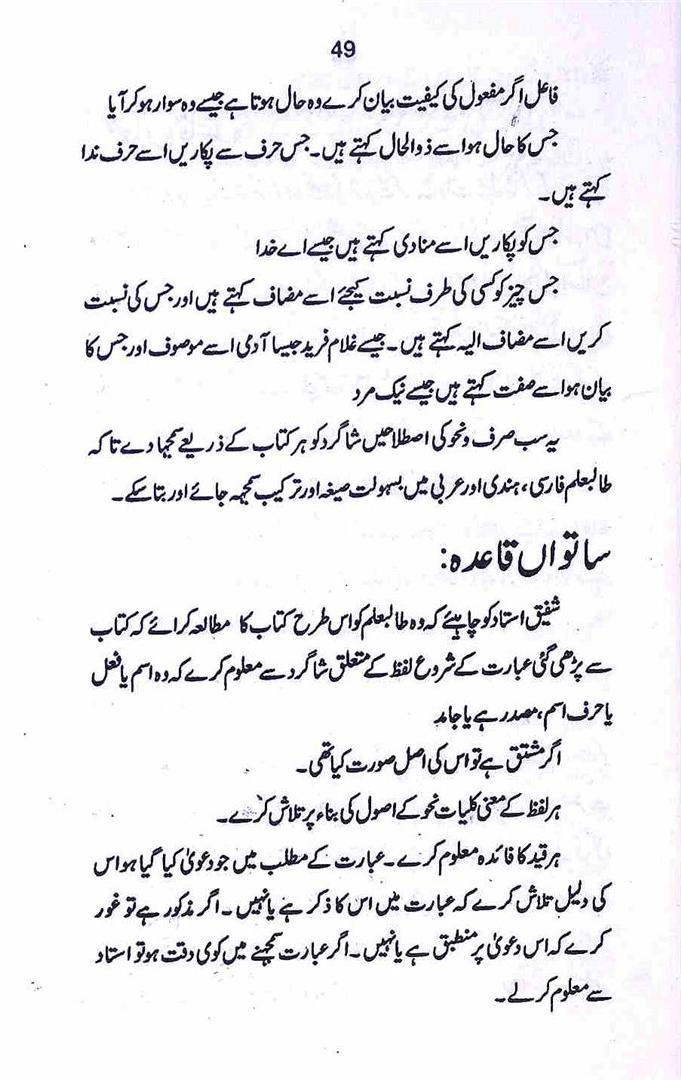 49
فاعل اگر مفعول کی کیفیت بیان کرے وہ حال ہوتا ہے جیسے وہ سوار ہو کر آیا
جس کا حال ہو اسے ذوالحال کہتے ہیں۔ جس حرف سے پکاریں اسے حرف ندا
کہتے ہیں۔
جس کو پکاریں اسے منادی کہتے ہیں جیسے اے خدا
جس چیز کو کسی کی طرف نسبت کیجئے اسے مضاف کہتے ہیں اور جس کی نسبت
کریں اسے مضاف الیہ کہتے ہیں۔ جیسے غلام فرید جیسا آدی اسے موصوف اور جس کا
بیان ہو اسے صفت کہتے ہیں جیسے نیک مرد
یہ سب صرف ونحو کی اصطلاحیں شاگرد کو ہر کتاب کے ذریعے سمجہا دے تا کہ
طالبعلم فارسی، ہندی اور عربی میں بسہولت صیغہ اور ترکیب سمجہہ جائے اور بتا سکے۔
ساتواں قاعدہ:
شفیق استاد کو چاہیئے کہ وہ طالبعلم کو اس طرح کتاب کا مطالعہ کرائے کہ کتاب
سے پڑھی گئی عبارت کے شروع لفظ کے متعلق شاگرد سے معلوم کرے کہ وہ اسم یا فعل
یا حرف اسم، مصدر ہے یا جامد
اگر مشتق ہے تو اس کی اصل صورت کیا تھی۔
ہر لفظ کے معنی کلیات نحو کے اصول کی بناء پر تلاش کرے۔
ہر قید کا فائدہ معلوم کرے۔ عبارت کے مطلب میں جو دعویٰ کیا گیا ہو اس
کی دلیل تلاش کرے کہ عبارت میں اس کا ذکر ہے یا نہیں۔ اگر مذکور ہے تو غور
کرے کہ اس دعویٰ پر منطبق ہے یا نہیں۔ اگر عبارت سمجہنے میں کوی دقت ہو تو استاد
سے معلوم کر لے۔